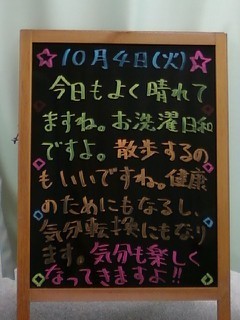 ☆10月4日(火)☆
今日もよく晴れて
ますね。お洗濯日和
ですよ。散歩するの
もいいですね。健康
のためにもなるし、
気分転換にもなり
ます。気分も楽しく
なってきますよ!!